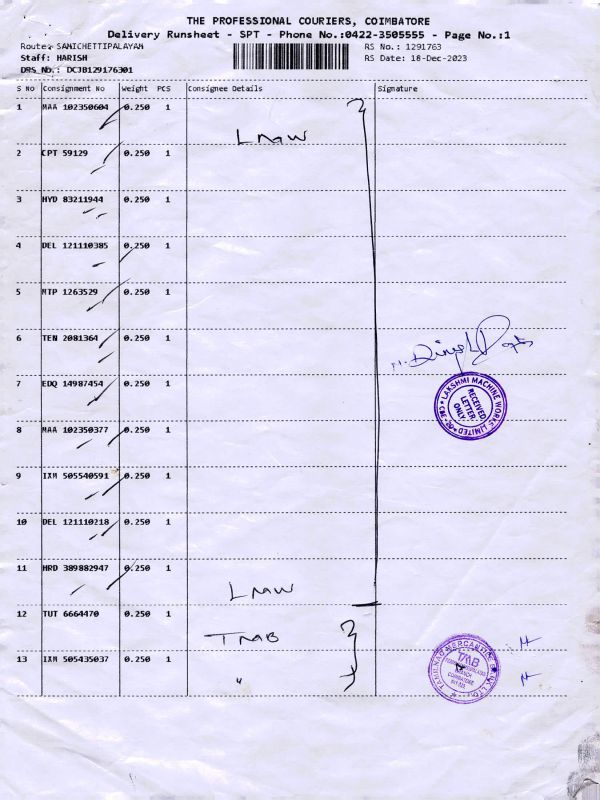 THE PROFESSIONAL COURIERS, COIMBATORE
Delivery Runsheet - SPT - Phone No.:0422-3505555 - Page No.:1
Route: SANICHETTIPALAYAM RS No.: 1291763
Staff: HARISH RS Date: 18-Dec-2023
DRS No.: DCJB129176301
S No Consignment No Weight PCS Consignee Details Signature
1 MAA 102350604 0.250 1
LMW
2 CPT 59129 0.250 1
3 HYD 83211944 0.250 1
4 DEL 121110385 0.250 1
5 MTP 1263529 0.250 1
6 TEN 2081364 0.250 1
7 EDQ 14987454 0.250 1
LAKSHMI MACHINE WORKS LIMITED
RECEIVED
LETTER
ONLY
8 MAA 102350377 0.250 1
9 IXM 505540591 0.250 1
10 DEL 121110218 0.250 1
11 HRD 389882947 0.250 1
LMW
12 TUT 6664470 0.250 1
TMB
13 IXM 505435037 0.250 1
"
TAMILNAD MERCANTILE BANK LTD.
TMB
BRANCH
COIMBATORE